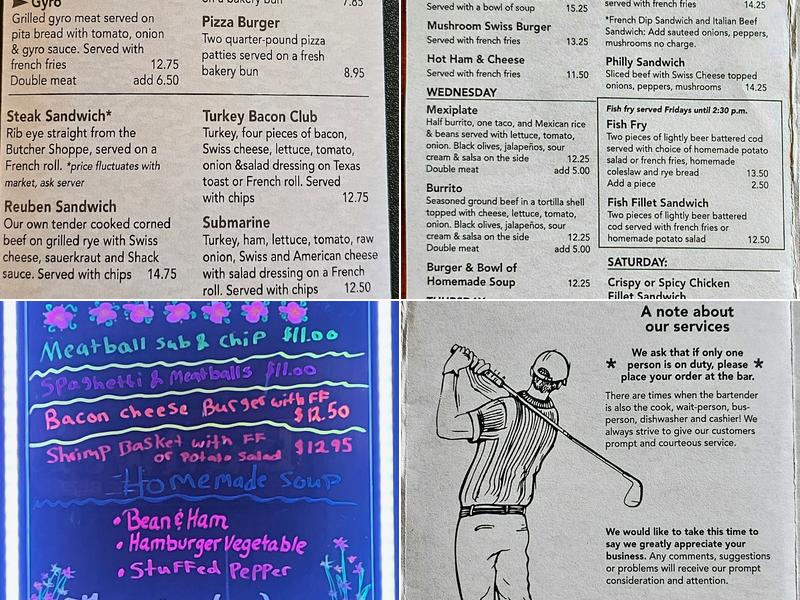 Gyro
Grilled gyro meat served on
pita bread with tomato, onion
& gyro sauce. Served with
french fries 12.75
Double meat add 6.50
Steak Sandwich*
Rib eye straight from the
Butcher Shoppe, served on a
French roll. *price fluctuates with
market, ask server
Reuben Sandwich
Our own tender cooked corned
beef on grilled rye with Swiss
cheese, sauerkraut and Shack
sauce. Served with chips 14.75
on a bakery bun 7.85
Pizza Burger
Two quarter-pound pizza
patties served on a fresh
bakery bun 8.95
Turkey Bacon Club
Turkey, four pieces of bacon,
Swiss cheese, lettuce, tomato,
onion &salad dressing on Texas
toast or French roll. Served
with chips 12.75
Submarine
Turkey, ham, lettuce, tomato, raw
onion, Swiss and American cheese
with salad dressing on a French
roll. Served with chips 12.50
Served with a bowl of soup 15.25
Mushroom Swiss Burger
Served with french fries 13.25
Hot Ham & Cheese
Served with french fries 11.50
WEDNESDAY
Mexiplate
Half burrito, one taco, and Mexican rice
& beans served with lettuce, tomato,
onion. Black olives, jalapeños, sour
cream & salsa on the side 12.25
Double meat add 5.00
Burrito
Seasoned ground beef in a tortilla shell
topped with cheese, lettuce, tomato,
onion. Black olives, jalapeños, sour
cream & salsa on the side 12.25
Double meat add 5.00
Burger & Bowl of
Homemade Soup 12.25
THURSDAY
served with french fries 14.25
*French Dip Sandwich and Italian Beef
Sandwich: Add sauteed onions, peppers,
mushrooms no charge.
Philly Sandwich
Sliced beef with Swiss Cheese topped
onions, peppers, mushrooms 14.25
Fish fry served Fridays until 2:30 p.m.
Fish Fry
Two pieces of lightly beer battered cod
served with choice of homemade potato
salad or french fries, homemade
coleslaw and rye bread 13.50
Add a piece 2.50
Fish Fillet Sandwich
Two pieces of lightly beer battered
cod served with french fries or
homemade potato salad 12.50
SATURDAY:
Crispy or Spicy Chicken
Fillet Sandwich
Meatball Sub & Chip $11.00
Spaghetti & Meatballs $11.00
Bacon Cheese Burger with FF
$12.50
Shrimp Basket with FF
or Potato Salad $12.95
Homemade Soup
• Bean & Ham
• Hamburger Vegetable
• Stuffed Pepper
A note about
our services
* We ask that if only one
person is on duty, please *
place your order at the bar.
There are times when the bartender
is also the cook, wait-person, bus-
person, dishwasher and cashier! We
always strive to give our customers
prompt and courteous service.
We would like to take this time to
say we greatly appreciate your
business. Any comments, suggestions
or problems will receive our prompt
consideration and attention.